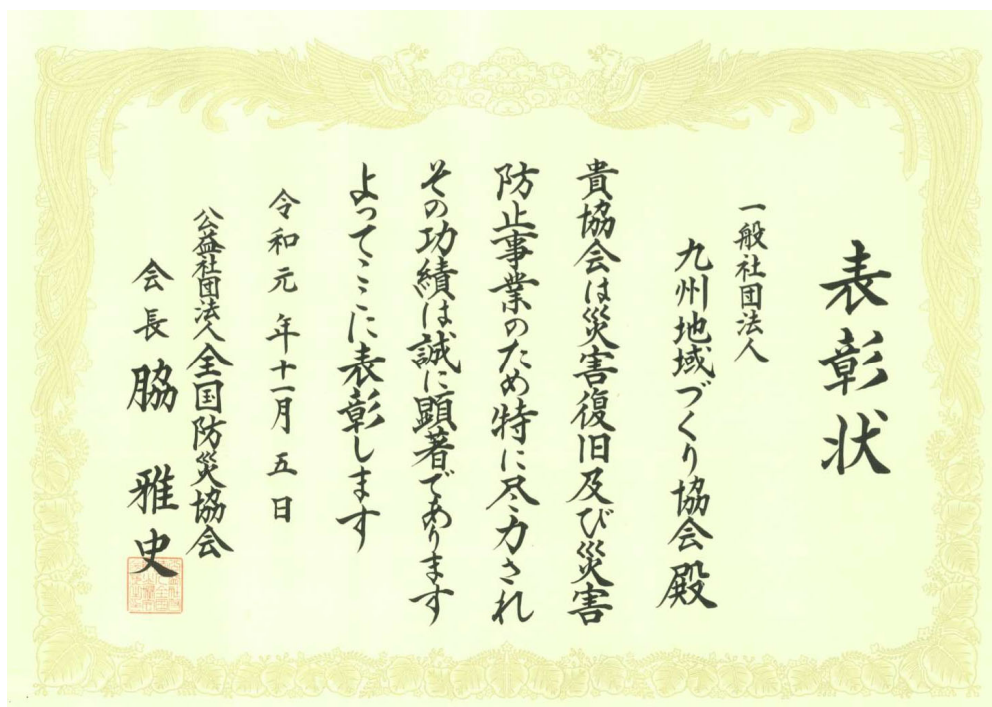 表彰状
一般社団法人
九州地域づくり協会殿
貴協会は災害復旧及び災害
防止事業のため特に尽力され
その功績は誠に顕著であります
よってここに表彰します
令和元年十一月五日
公益社団法人全国防災協会
会長 脇 雅史